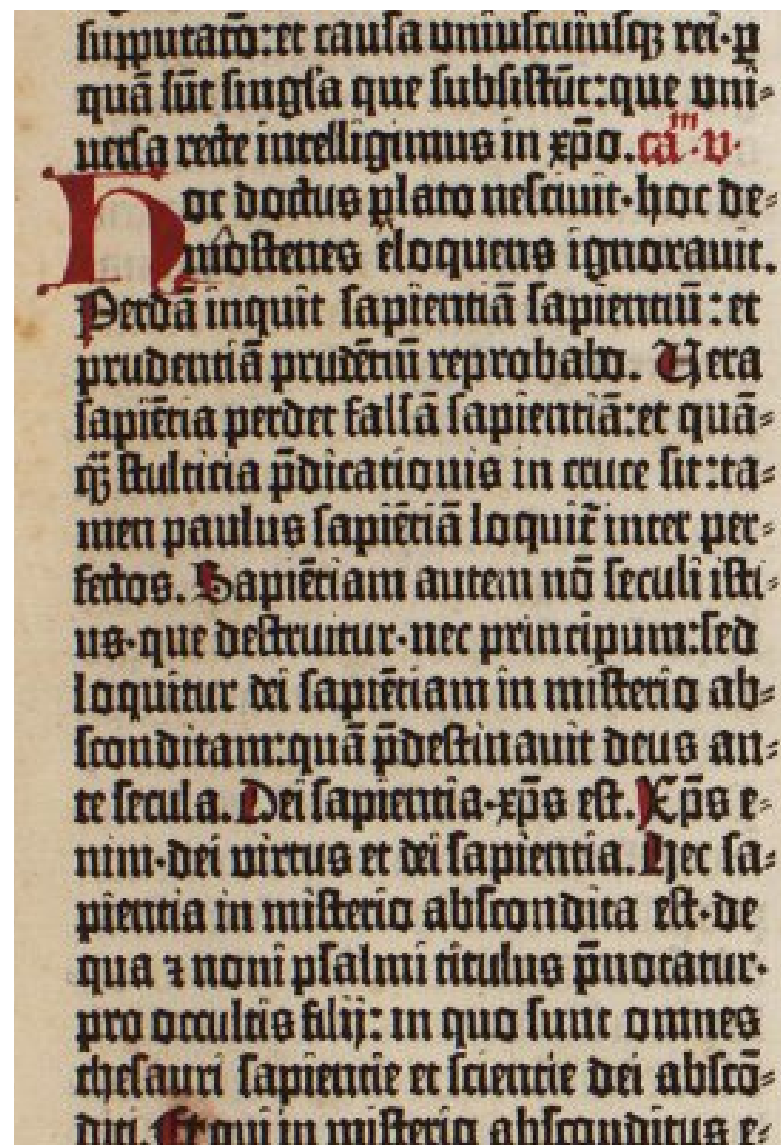 supputatō:et causa uniuscuiusqꝫ rei·ꝑ
quā sūt singl'a que subsistūt:que uni⸗
uersa recte intelligimus in xp̄o. ca^m·v·
Hoc doctus plato nesciuit·hoc de⸗
mostenes eloquens ignorauit.
Perdā inquit sapientiā sapientiū: et
prudentiā prudētiū reprobabo. Vera
sapiētia perdet falsā sapientiā:et quā⸗
q̄ꝫ stulticia p̄dicationis in cruce sit:ta⸗
men paulus sapiētiā loquit̄ inter per⸗
fectos. Sapiētiam autem nō seculi isti⸗
us·que destruitur·nec principum:sed
loquitur dei sapiētiam in misterio ab⸗
sconditam:quā p̄destinauit deus an⸗
te secula. Dei sapientia·xp̄s est. Xp̄s e⸗
nim·dei virtus et dei sapientia. Hec sa⸗
pientia in misterio abscondita est·de
qua ⁊ noni psalmi titulus p̄notatur·
pro occultis filij: in quo sunt omnes
thesauri sapientie et scientie dei abscō⸗
diti. Et qui in misterio absconditus e⸗